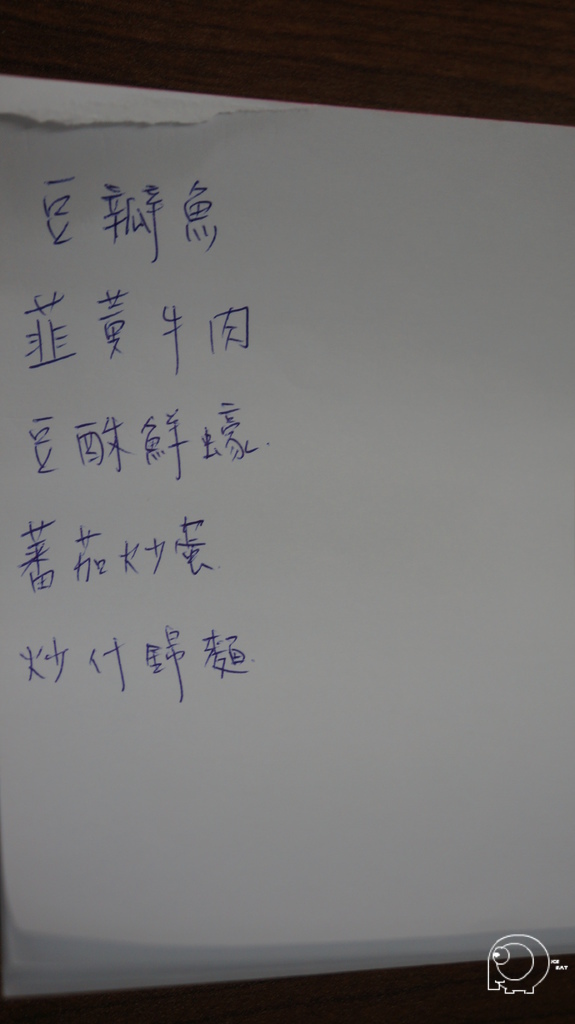 豆瓣魚
韮黃牛肉
豆酥鮮蠔
蕃茄炒蛋
炒什錦麵
ICE
EAT